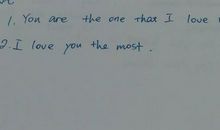 1. You are the one that I love
2. I love you the most.